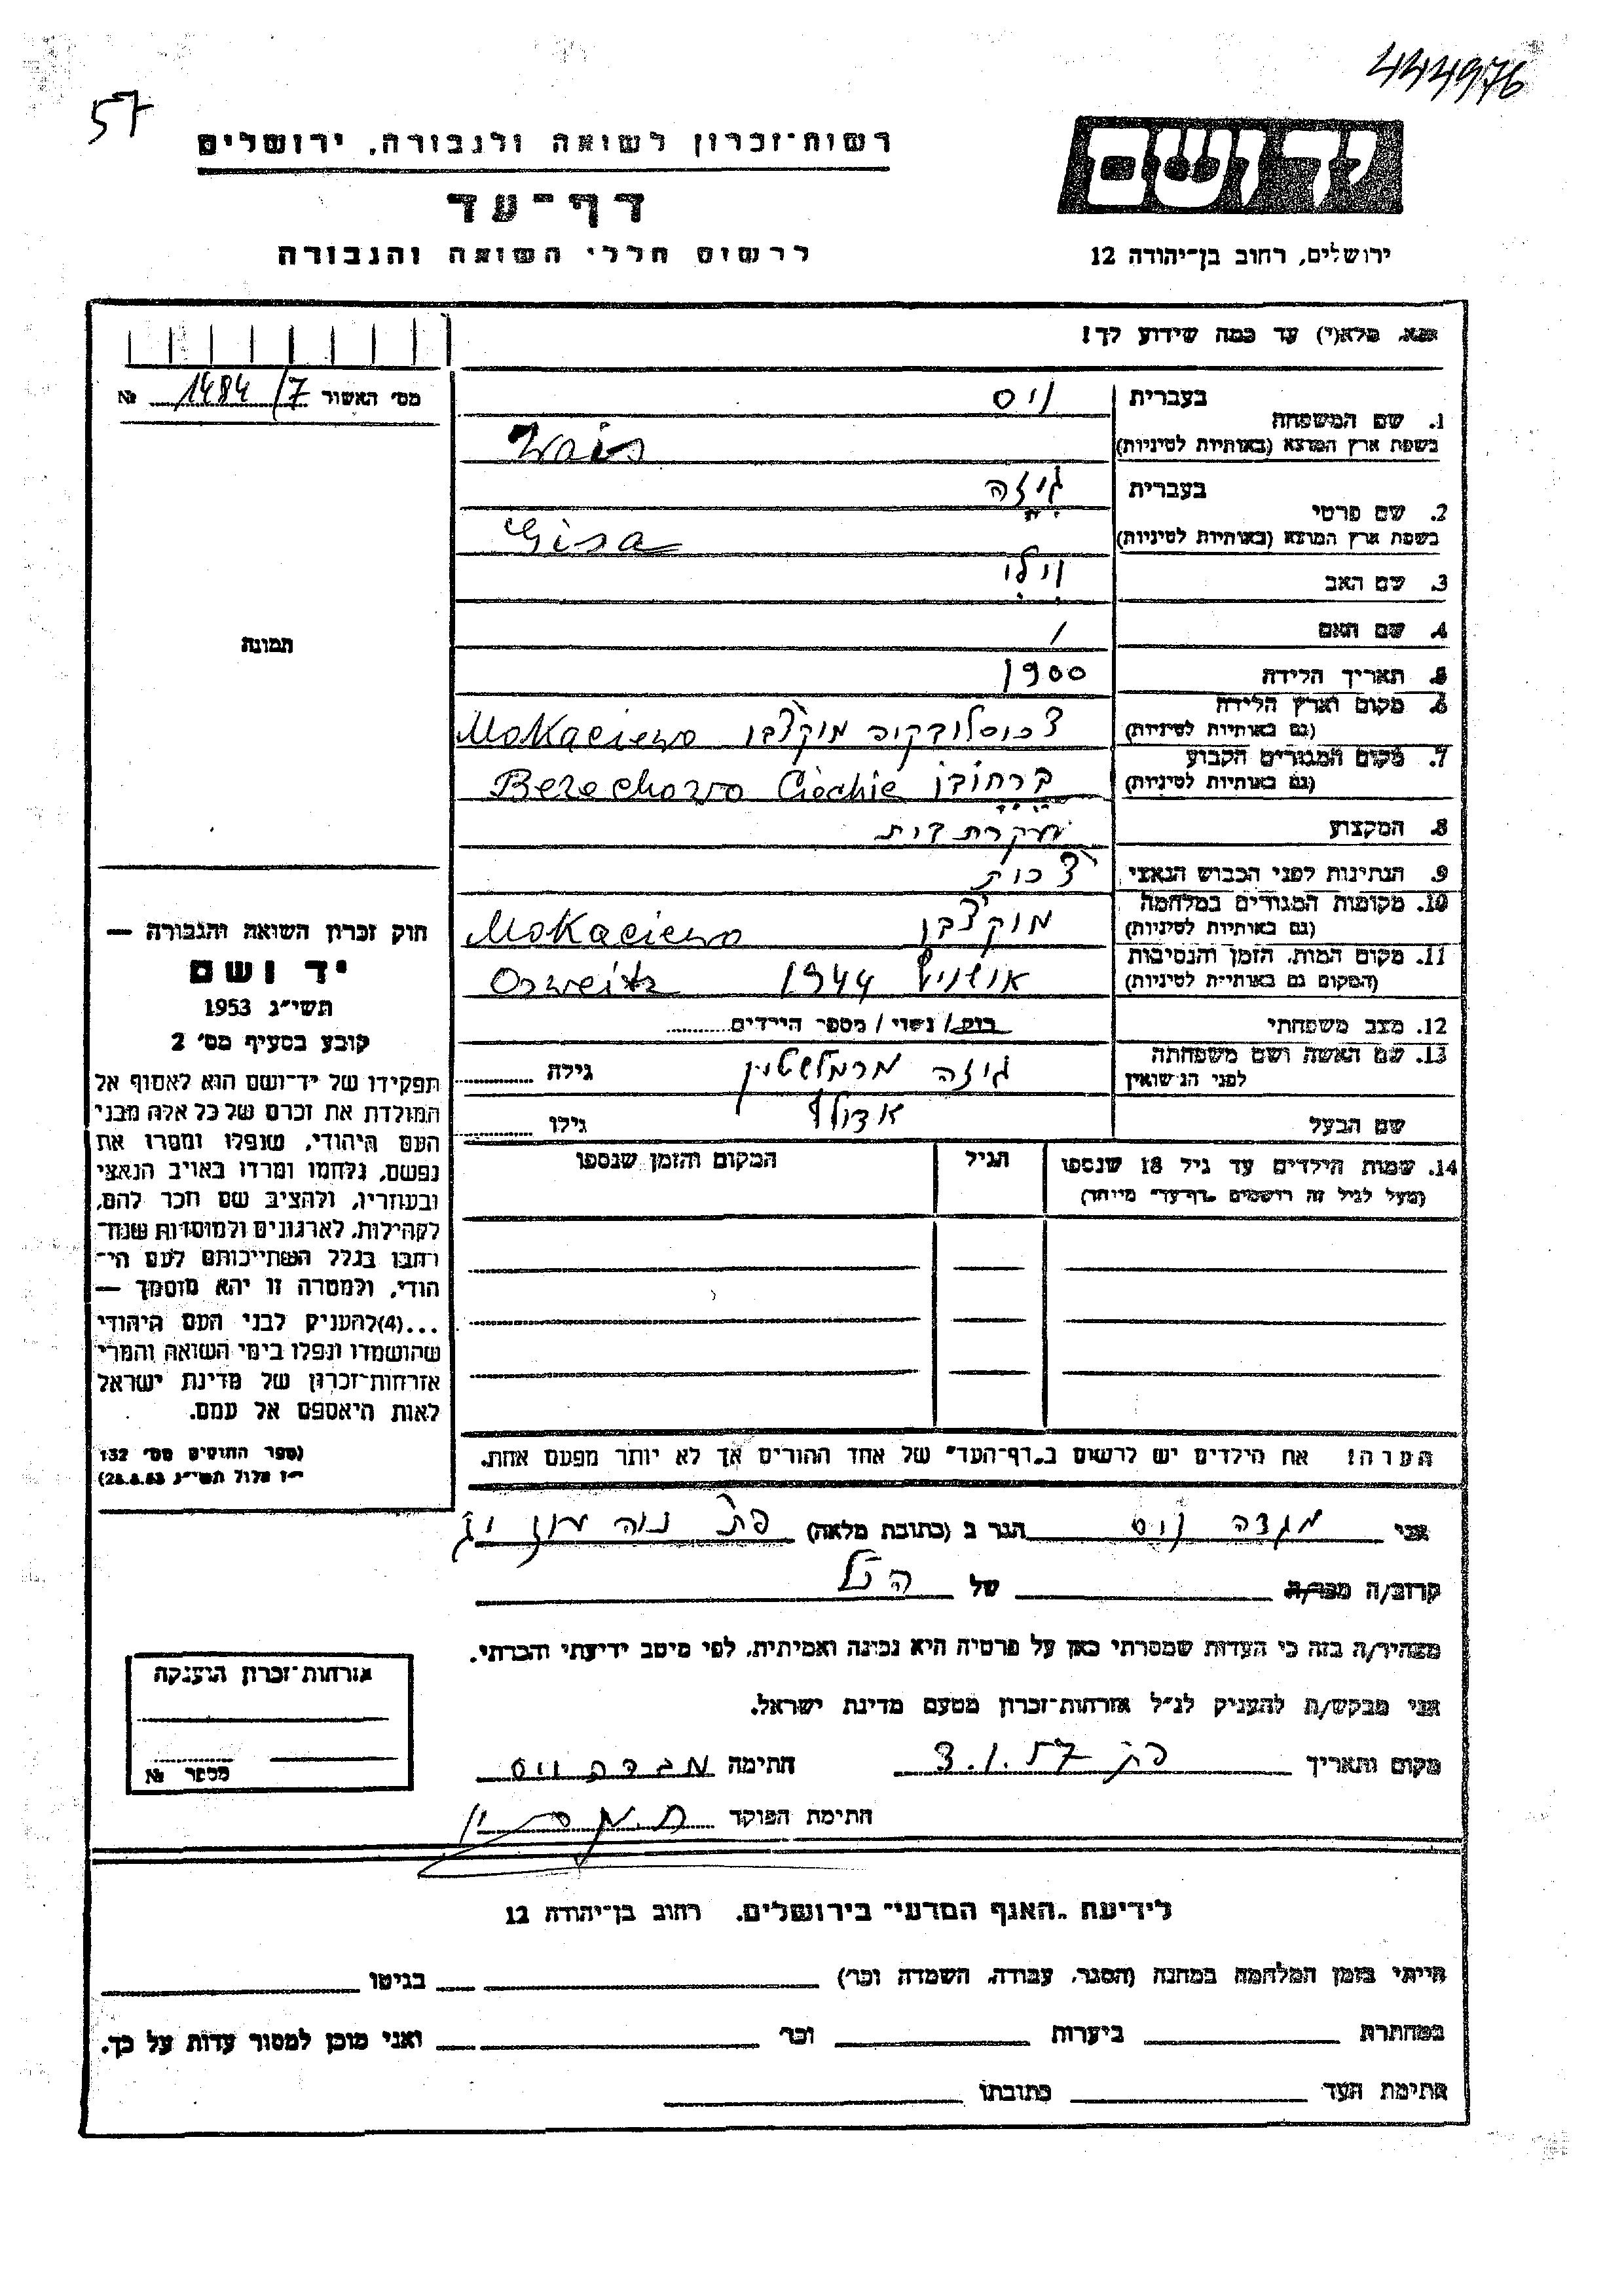 444976
57
רשות־זכרון לשואה ולגבורה, ירושלים
דף־עד
לרשום חללי השואה והגבורה
יד ושם
ירושלים, רחוב בן־יהודה 12
נא, מלא(י) עד כמה שידוע לך!
מס' האשור 1484/7 №
1. שם המשפחה
בעברית וייס
בשפת ארץ המוצא (באותיות לטיניות) Wais
2. שם פרטי
בעברית גיזה
בשפת ארץ המוצא (באותיות לטיניות) Gisa
3. שם האב וילי
4. שם האם /
5. תאריך הלידה 1900
6. מקום וארץ הלידה
(גם באותיות לטיניות) צ'כוסלובקיה מוקצ'בו Mokaciewo
7. מקום המגורים הקבוע
(גם באותיות לטיניות) ברחובו Berechowo Ciechie
8. המקצוע עקרת בית
9. הנתינות לפני הכבוש הנאצי צ'כית
10. מקומות המגורים במלחמה
(גם באותיות לטיניות) מוקצ'בו Mokaciewo
11. מקום המות, הזמן והנסיבות
(המקום גם באותיות לטיניות) אושויץ 1944 Osweitz
12. מצב משפחתי רוק / נשוי / מספר הילדים
13. שם האשה ושם משפחתה
לפני הנישואין גיזה מרמלשטיין גילה
שם הבעל אדולף גילו
14. שמות הילדים עד גיל 18 שנספו
(מעל לגיל זה רושמים "דף־עד" מיוחד)
הגיל
המקום והזמן שנספו
הערה! את הילדים יש לרשום ב"דף־העד" של אחד ההורים אך לא יותר מפעם אחת.
תמונה
חוק זכרון השואה והגבורה —
יד ושם
תשי"ג 1953
קובע בסעיף מס' 2
תפקידו של יד־ושם הוא לאסוף אל
המולדת את זכרם של כל אלה מבני
העם היהודי, שנפלו ומסרו את
נפשם, נלחמו ומרדו באויב הנאצי
ובעוזריו, ולהציב שם וזכר להם,
לקהילות, לארגונים ולמוסדות שנח־
רבו בגלל השתייכותם לעם הי־
הודי, ולמטרה זו יהא מוסמך —
...(4)להעניק לבני העם היהודי
שהושמדו ונפלו בימי השואה והמרי
אזרחות־זכרון של מדינת ישראל
לאות היאספם אל עמם.
(ספר החוקים מס' 132
י"ז אלול תשי"ג 28.8.53)
אני מגדה וייס הגר ב (כתובת מלאה) פ"ת נוה מונ
קרוב/ה מכר/ה של
מצהיר/ה בזה כי העדות שמסרתי כאן על פרטיה היא נכונה ואמיתית, לפי מיטב ידיעתי והכרתי.
אני מבקש/ת להעניק לנ"ל אזרחות־זכרון מטעם מדינת ישראל.
מקום ותאריך פ"ת 3.1.57 חתימה מגדה וייס
חתימת הפוקד
אזרחות־זכרון הוענקה
מספר №
לידיעת "האגף המדעי" בירושלים, רחוב בן־יהודה 12
הייתי בזמן המלחמה במחנה (הסגר, עבודה, השמדה וכו') בגיטו
במחתרת ביערות וכו' ואני מוכן למסור עדות על כך.
חתימת העד כתובתו